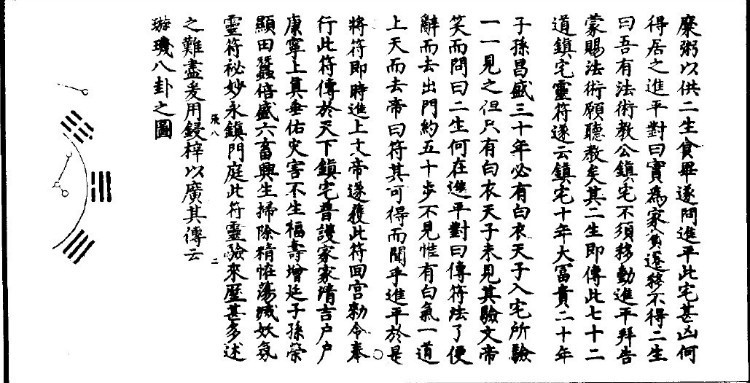 糜粥以供二生食畢遂問進平此宅甚凶何
得居之進平對曰實為家貧遷移不得二生
曰吾有法術教公鎮宅不須移動進平拜告
蒙賜法術願聽教矣其二生即傳此七十二
道鎮宅靈符遂云鎮宅十年大富貴二十年
子孫昌盛三十年必有白衣天子入宅所驗
一一見之但只有白衣天子未見其驗文帝
笑而問曰二生何在進平對曰傳符法了便
辭而去出門約五十步不見惟有白氣一道
上天而去帝曰符其可得而聞乎進平於是
將符即時進上文帝遂獲此符回宮勅令奉
行此符傳於天下鎮宅普護家家清吉戶戶
康寧上真垂佑災害不生福壽增延子孫榮
顯田蠶倍盛六畜興生掃除精怪蕩滅妖氛
靈符秘妙永鎮門庭此符靈驗來歷甚多述
之難盡爰用鋟梓以廣其傳云
璇璣八卦之圖
張八
二